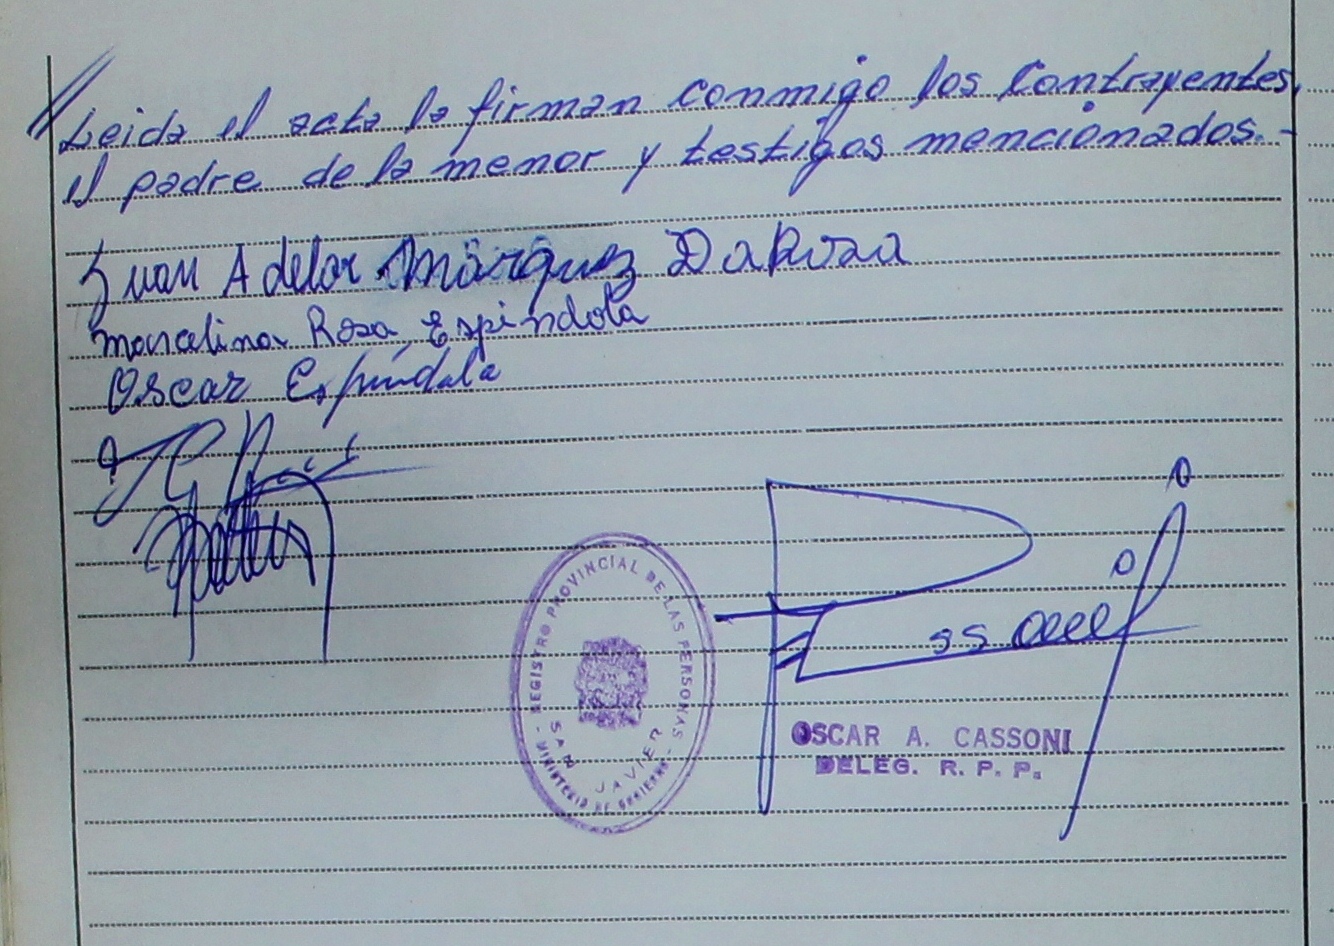 Leida el acta la firman conmigo los contrayentes,
el padre de la menor y testigos mencionados.-
Juan Adelar Márquez DaRosa
Marcelina Rosa Espindola
Oscar Espíndola
REGISTRO PROVINCIAL DE LAS PERSONAS
- MINISTERIO DE GOBIERNO -
SAN JAVIER
OSCAR A. CASSONI
DELEG. R. P. P.